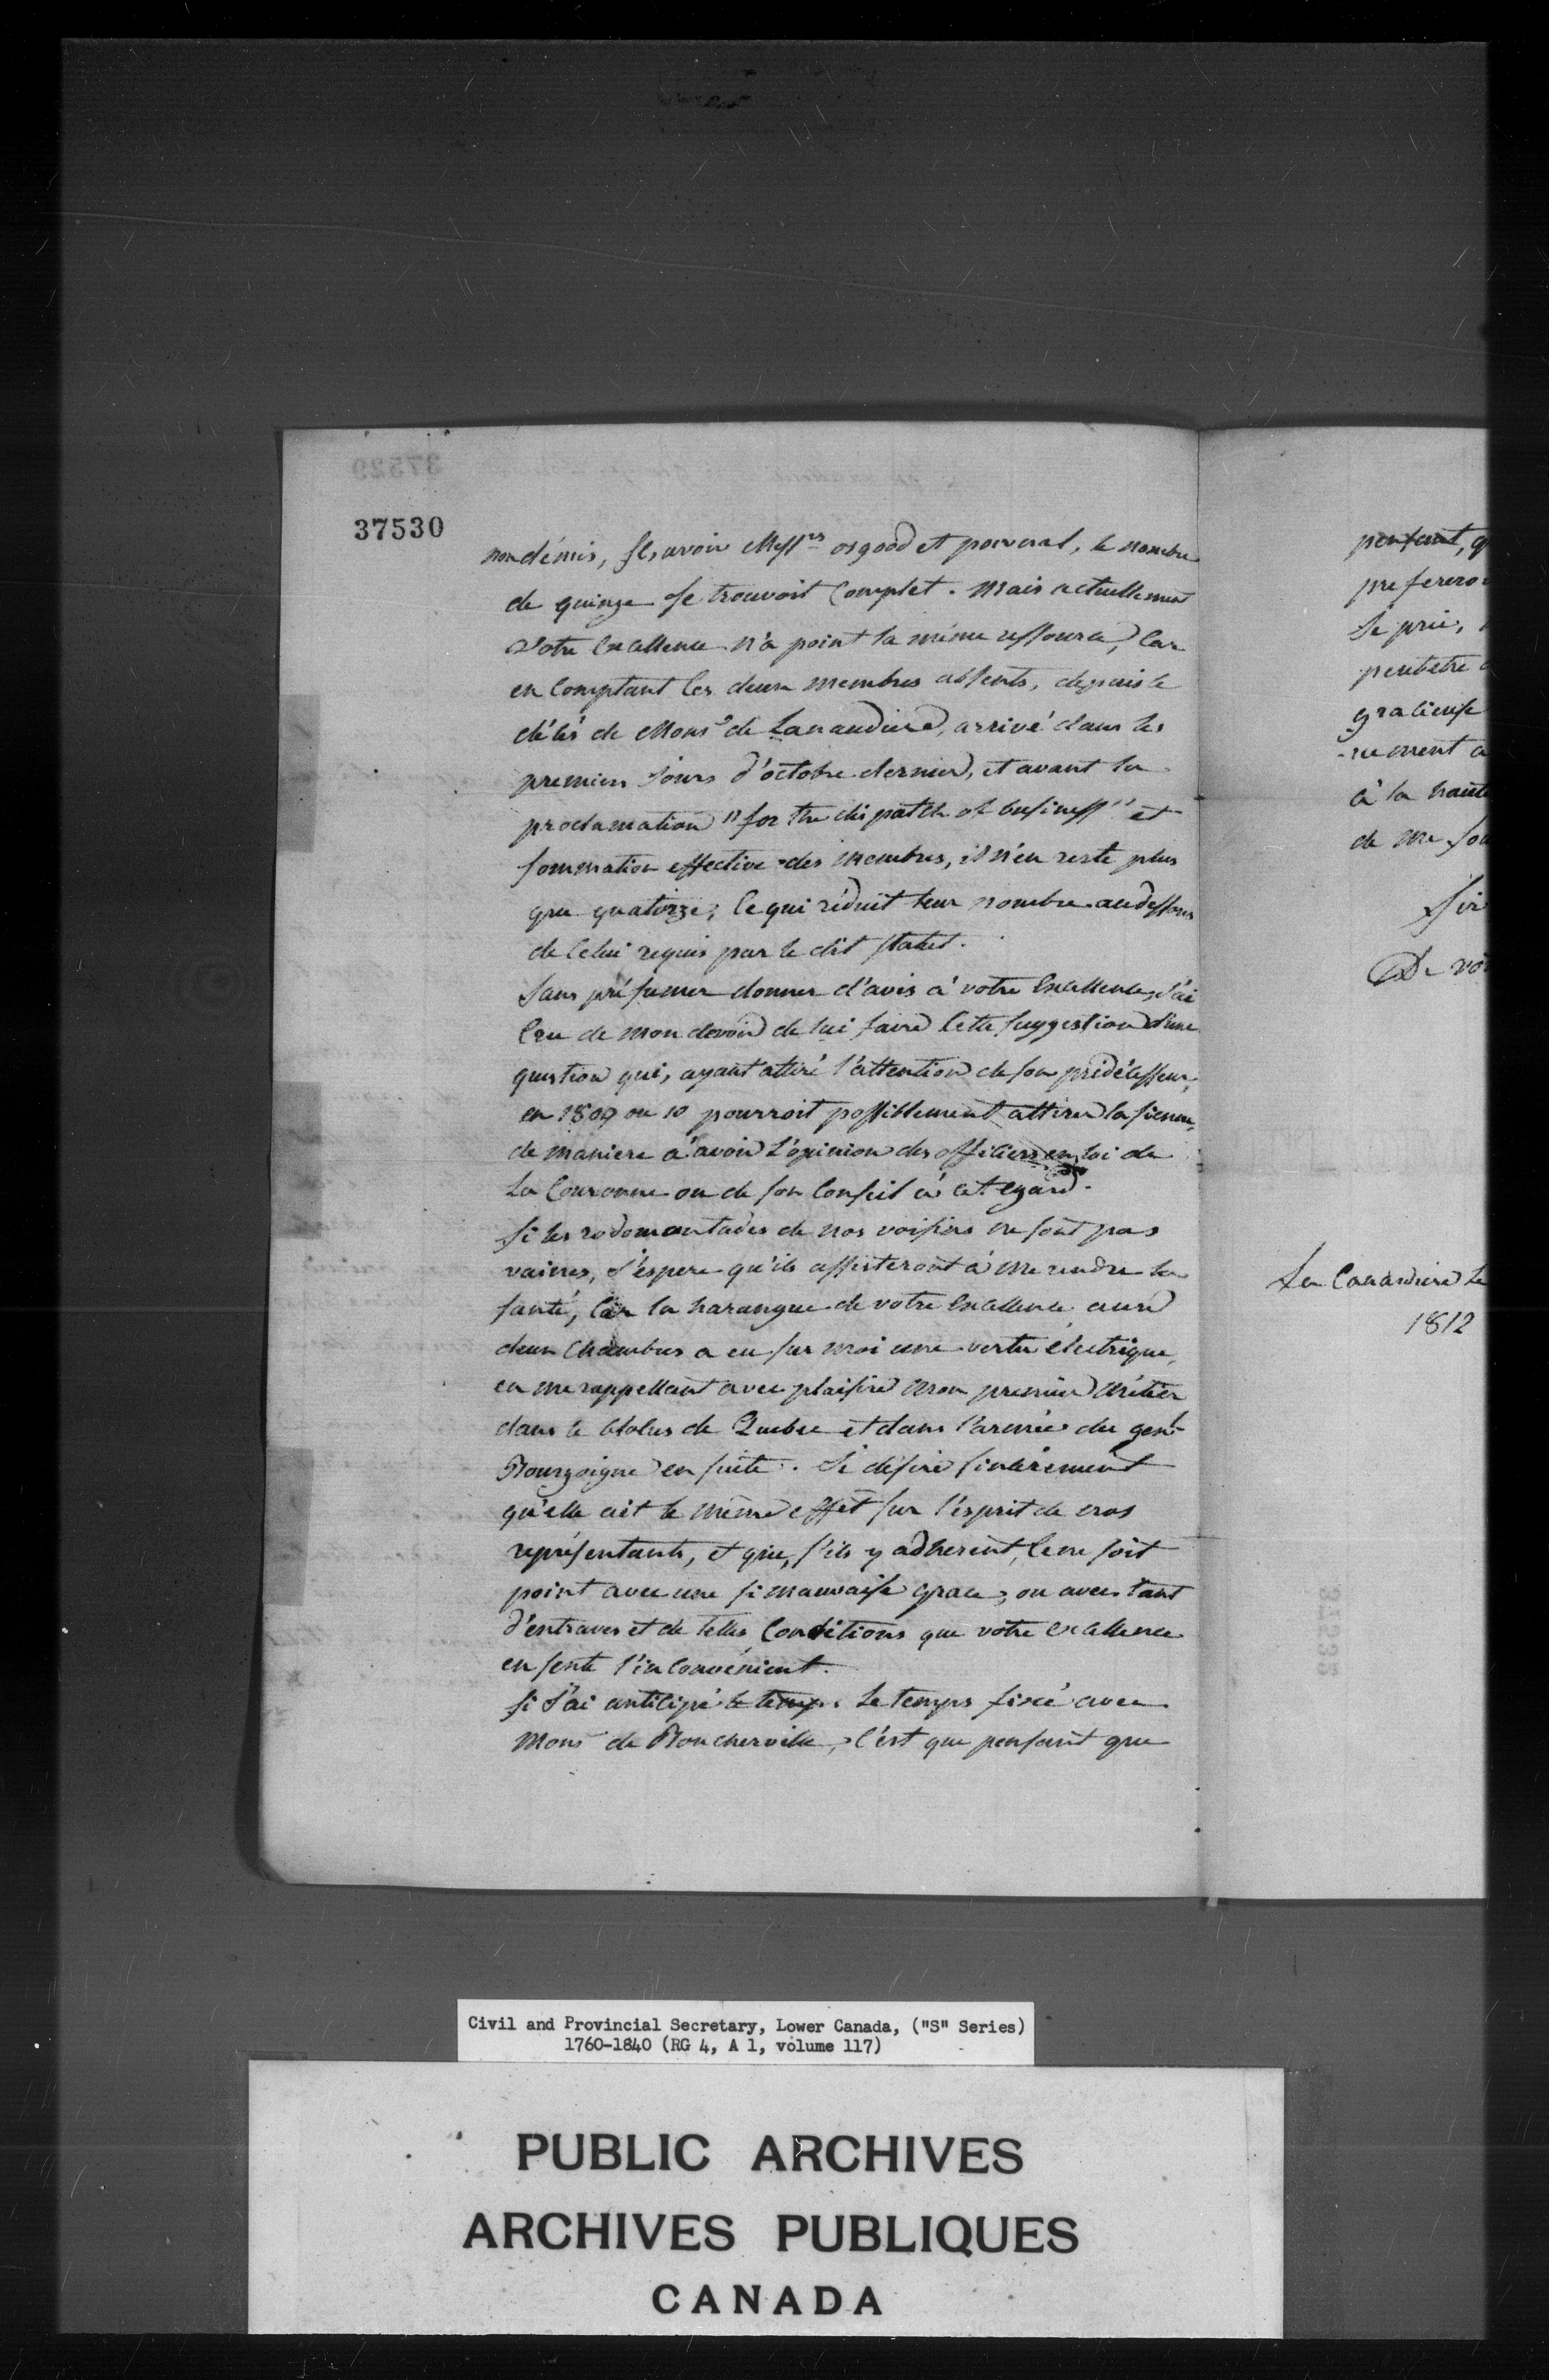 37529
37530
non démis, sçavoir Mess.rs osgood et pownal, le nombre
de quinze se trouvoit Complet. Mais actuellement
Votre Excellence n'a point la même ressource, Car
en Comptant les deux membres absents, depuis le
décès de Mons.r de Lanaudiere, arrivé dans les
premiers Jours d'octobre dernier, et avant la
proclamation "for the dispatch of business" et
sommation effective des membres, il n'en reste plus
que quatorze; Ce qui réduit leur nombre audessous
de Celui requis par le dit statut.
Sans présumer donner d'avis à votre Excellence, J'ai
Cru de mon devoir de lui faire Cette suggestion d'une
question qui, ayant attiré l'attention de son prédécesseur,
en 1809 ou 10 pourroit possiblement attirer la sienne,
de maniere à avoir l'opinion des officiers en loi de
La Couronne ou de son Conseil à cet egard.
Si les rodomontades de nos voisins ne sont pas
vaines, J'espere qu'ils assisteront à me rendre la
santé, Car la harangue de votre Excellence aux
deux Chambres a eu sur moi une vertu électrique,
en me rappellant avec plaisir mon premier métier
dans le blolus de Quebec et dans l'armée du gen.l
Bourgoigne en suite. Je désire sincèrement
qu'elle ait le même effet sur l'esprit de nos
représentants, et que, s'ils y adherent, Ce ne soit
point avec une si mauvaise grace, ou avec tant
d'entraves et de telles Conditions que votre Excellence
en sente l'inconvénient.
Si J'ai anticipé le temps Le temps fixé avec
Mons.r de Boucherville, C'est que pensant que
pensant, q
prefereroi
Je prie,
peutetre
gracieuse
-nement a
à la haute
de me sou
Sir
De vot
La Canardiere le
1812
Civil and Provincial Secretary, Lower Canada, ("S" Series)
1760-1840 (RG 4, A 1, volume 117)
PUBLIC ARCHIVES
ARCHIVES PUBLIQUES
CANADA